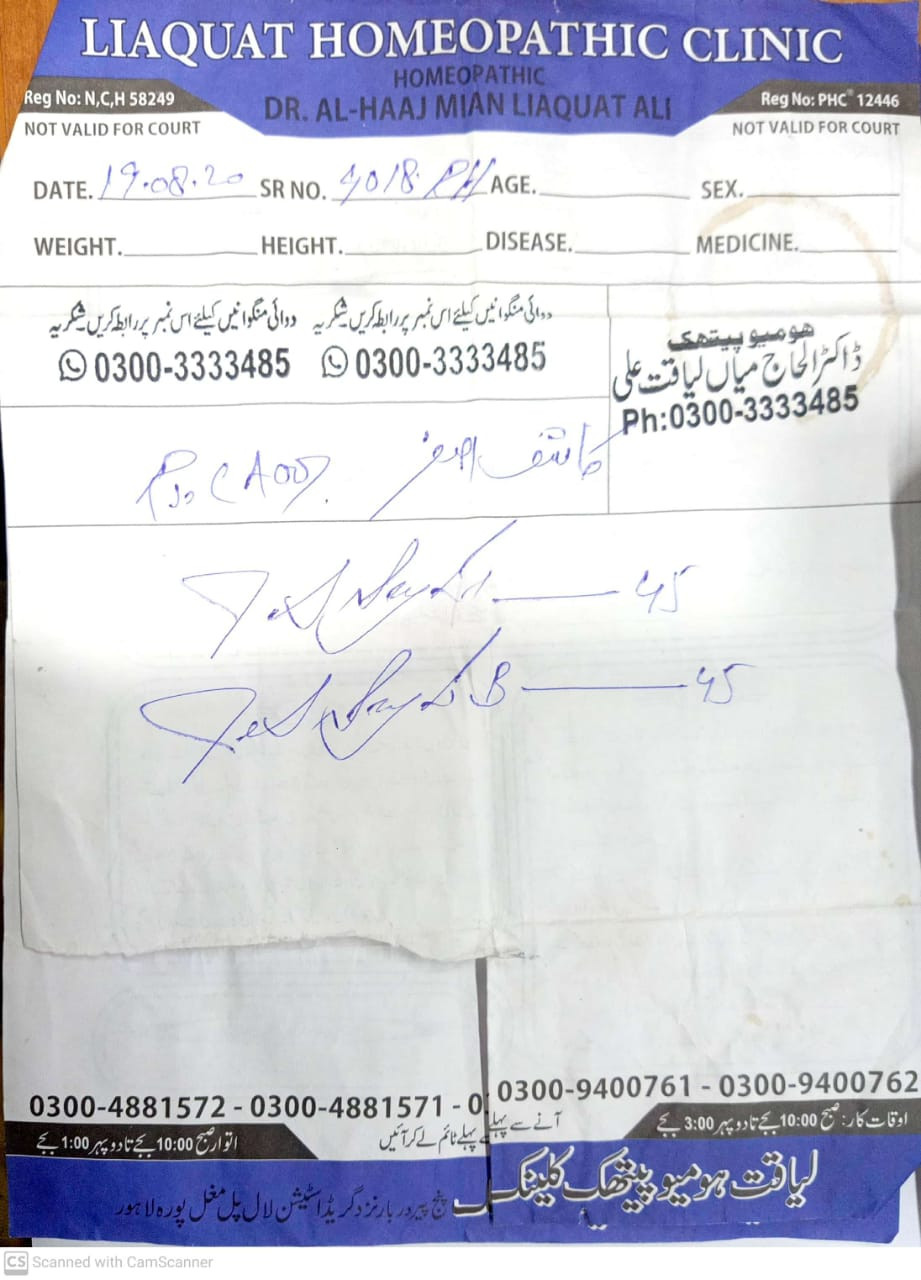 LIAQUAT HOMEOPATHIC CLINIC
HOMEOPATHIC
DR. AL-HAAJ MIAN LIAQUAT ALI
Reg No: N,C,H 58249
Reg No: PHC 12446
NOT VALID FOR COURT
NOT VALID FOR COURT
DATE. 19.08.20 SR NO. AGE. SEX.
WEIGHT. HEIGHT. DISEASE. MEDICINE.
دوائی منگوانیں کیلئے اس نمبر پر رابطہ کریں شکریہ
0300-3333485
دوائی منگوانیں کیلئے اس نمبر پر رابطہ کریں شکریہ
0300-3333485
ھومیو پیتھک
ڈاکٹر الحاج میاں لیاقت علی
Ph:0300-3333485
کاشف
45
B 45
0300-4881572 - 0300-4881571 - 0
0300-9400761 - 0300-9400762
آنے سے پہلے
پہلے ٹائم لے کر آئیں
اوقات کار: صبح 10:00 بجے تا دوپہر 3:00 بجے
اتوار صبح 10:00 بجے تا دوپہر 1:00 بجے
لیاقت ہومیو پیتھک کلینک
پنج پیر دربار نزد گریڈ اسٹیشن لال پل مغل پورہ لاہور
CS Scanned with CamScanner